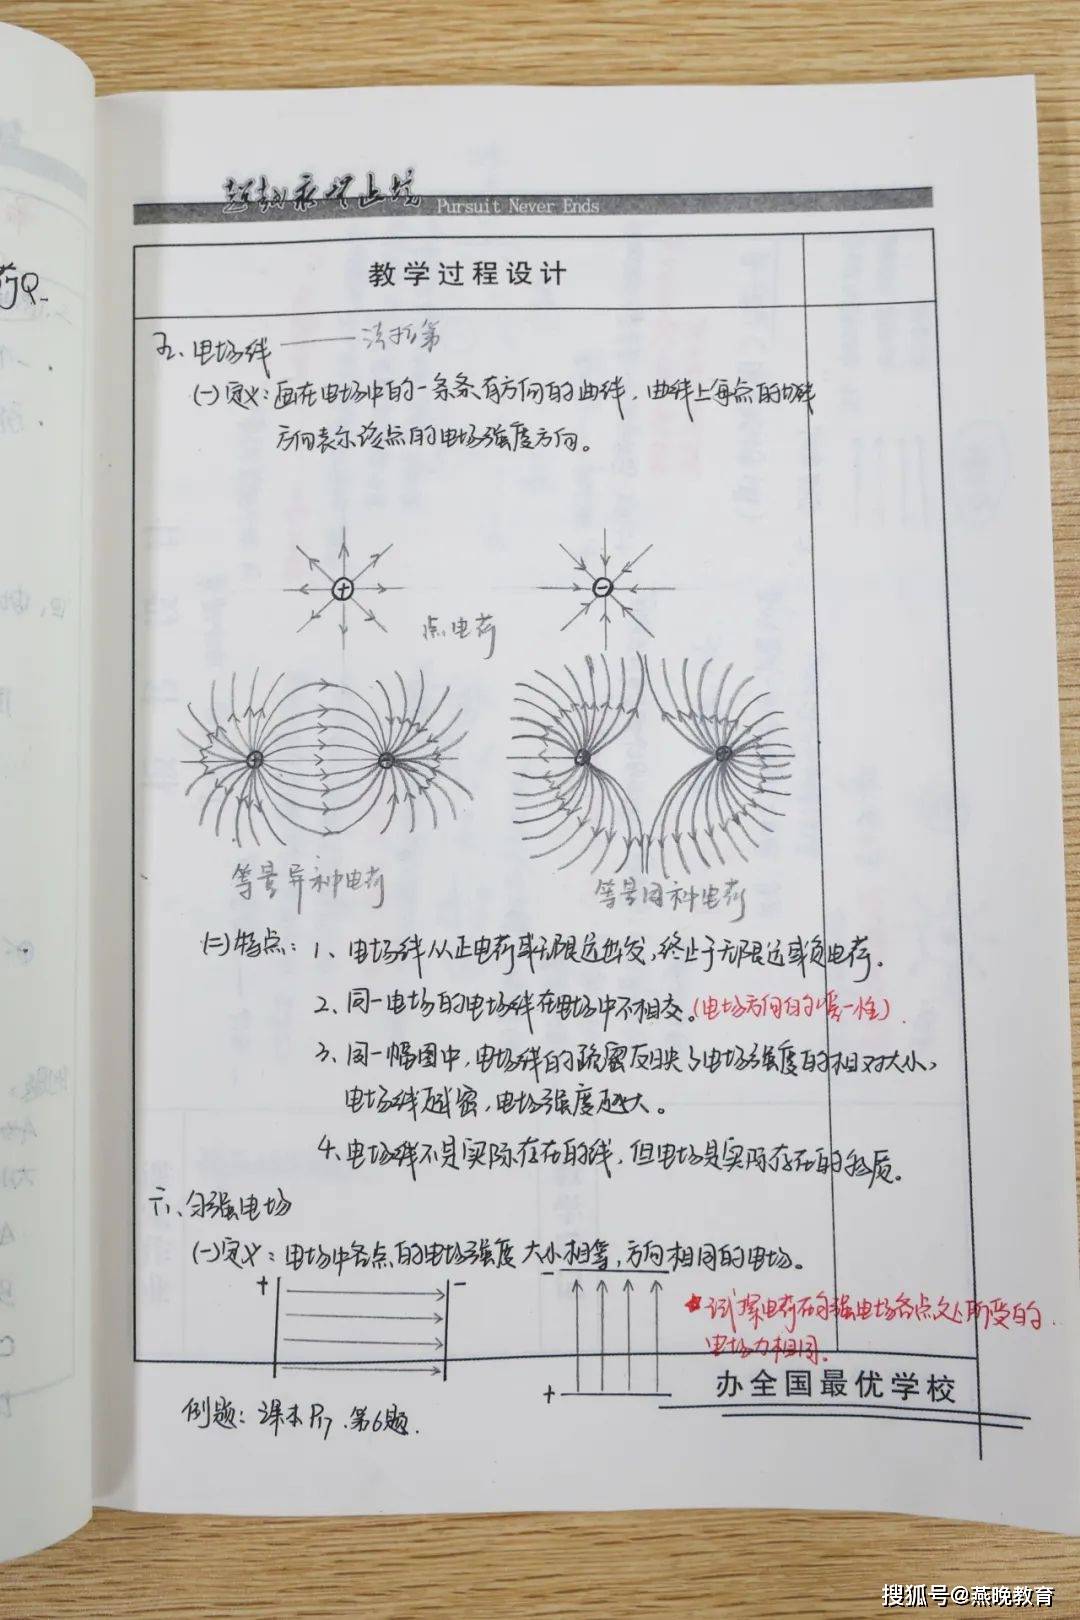 荷Q-
追求永无止境
Pursuit Never Ends
教学过程设计
五、电场线 —— 法拉第
(一)定义：画在电场中的一条条有方向的曲线，曲线上每点的切线
方向表示该点的电场强度方向。
+
-
点电荷
+
-
等量异种电荷
等量同种电荷
(二)特点：1、电场线从正电荷或无限远出发，终止于无限远或负电荷。
2、同一电场的电场线在电场中不相交。(电场方向的唯一性)。
3、同一幅图中，电场线的疏密反映了电场强度的相对大小，
电场线越密，电场强度越大。
4、电场线不是实际存在的线，但电场是实际存在的物质。
六、匀强电场
(一)定义：电场中各点的电场强度大小相等，方向相同的电场。
+ -
-
★试探电荷在匀强电场各点处所受的
电场力相同。
+
办全国最优学校
例题：课本P17、第6题.
搜狐号@燕晚教育